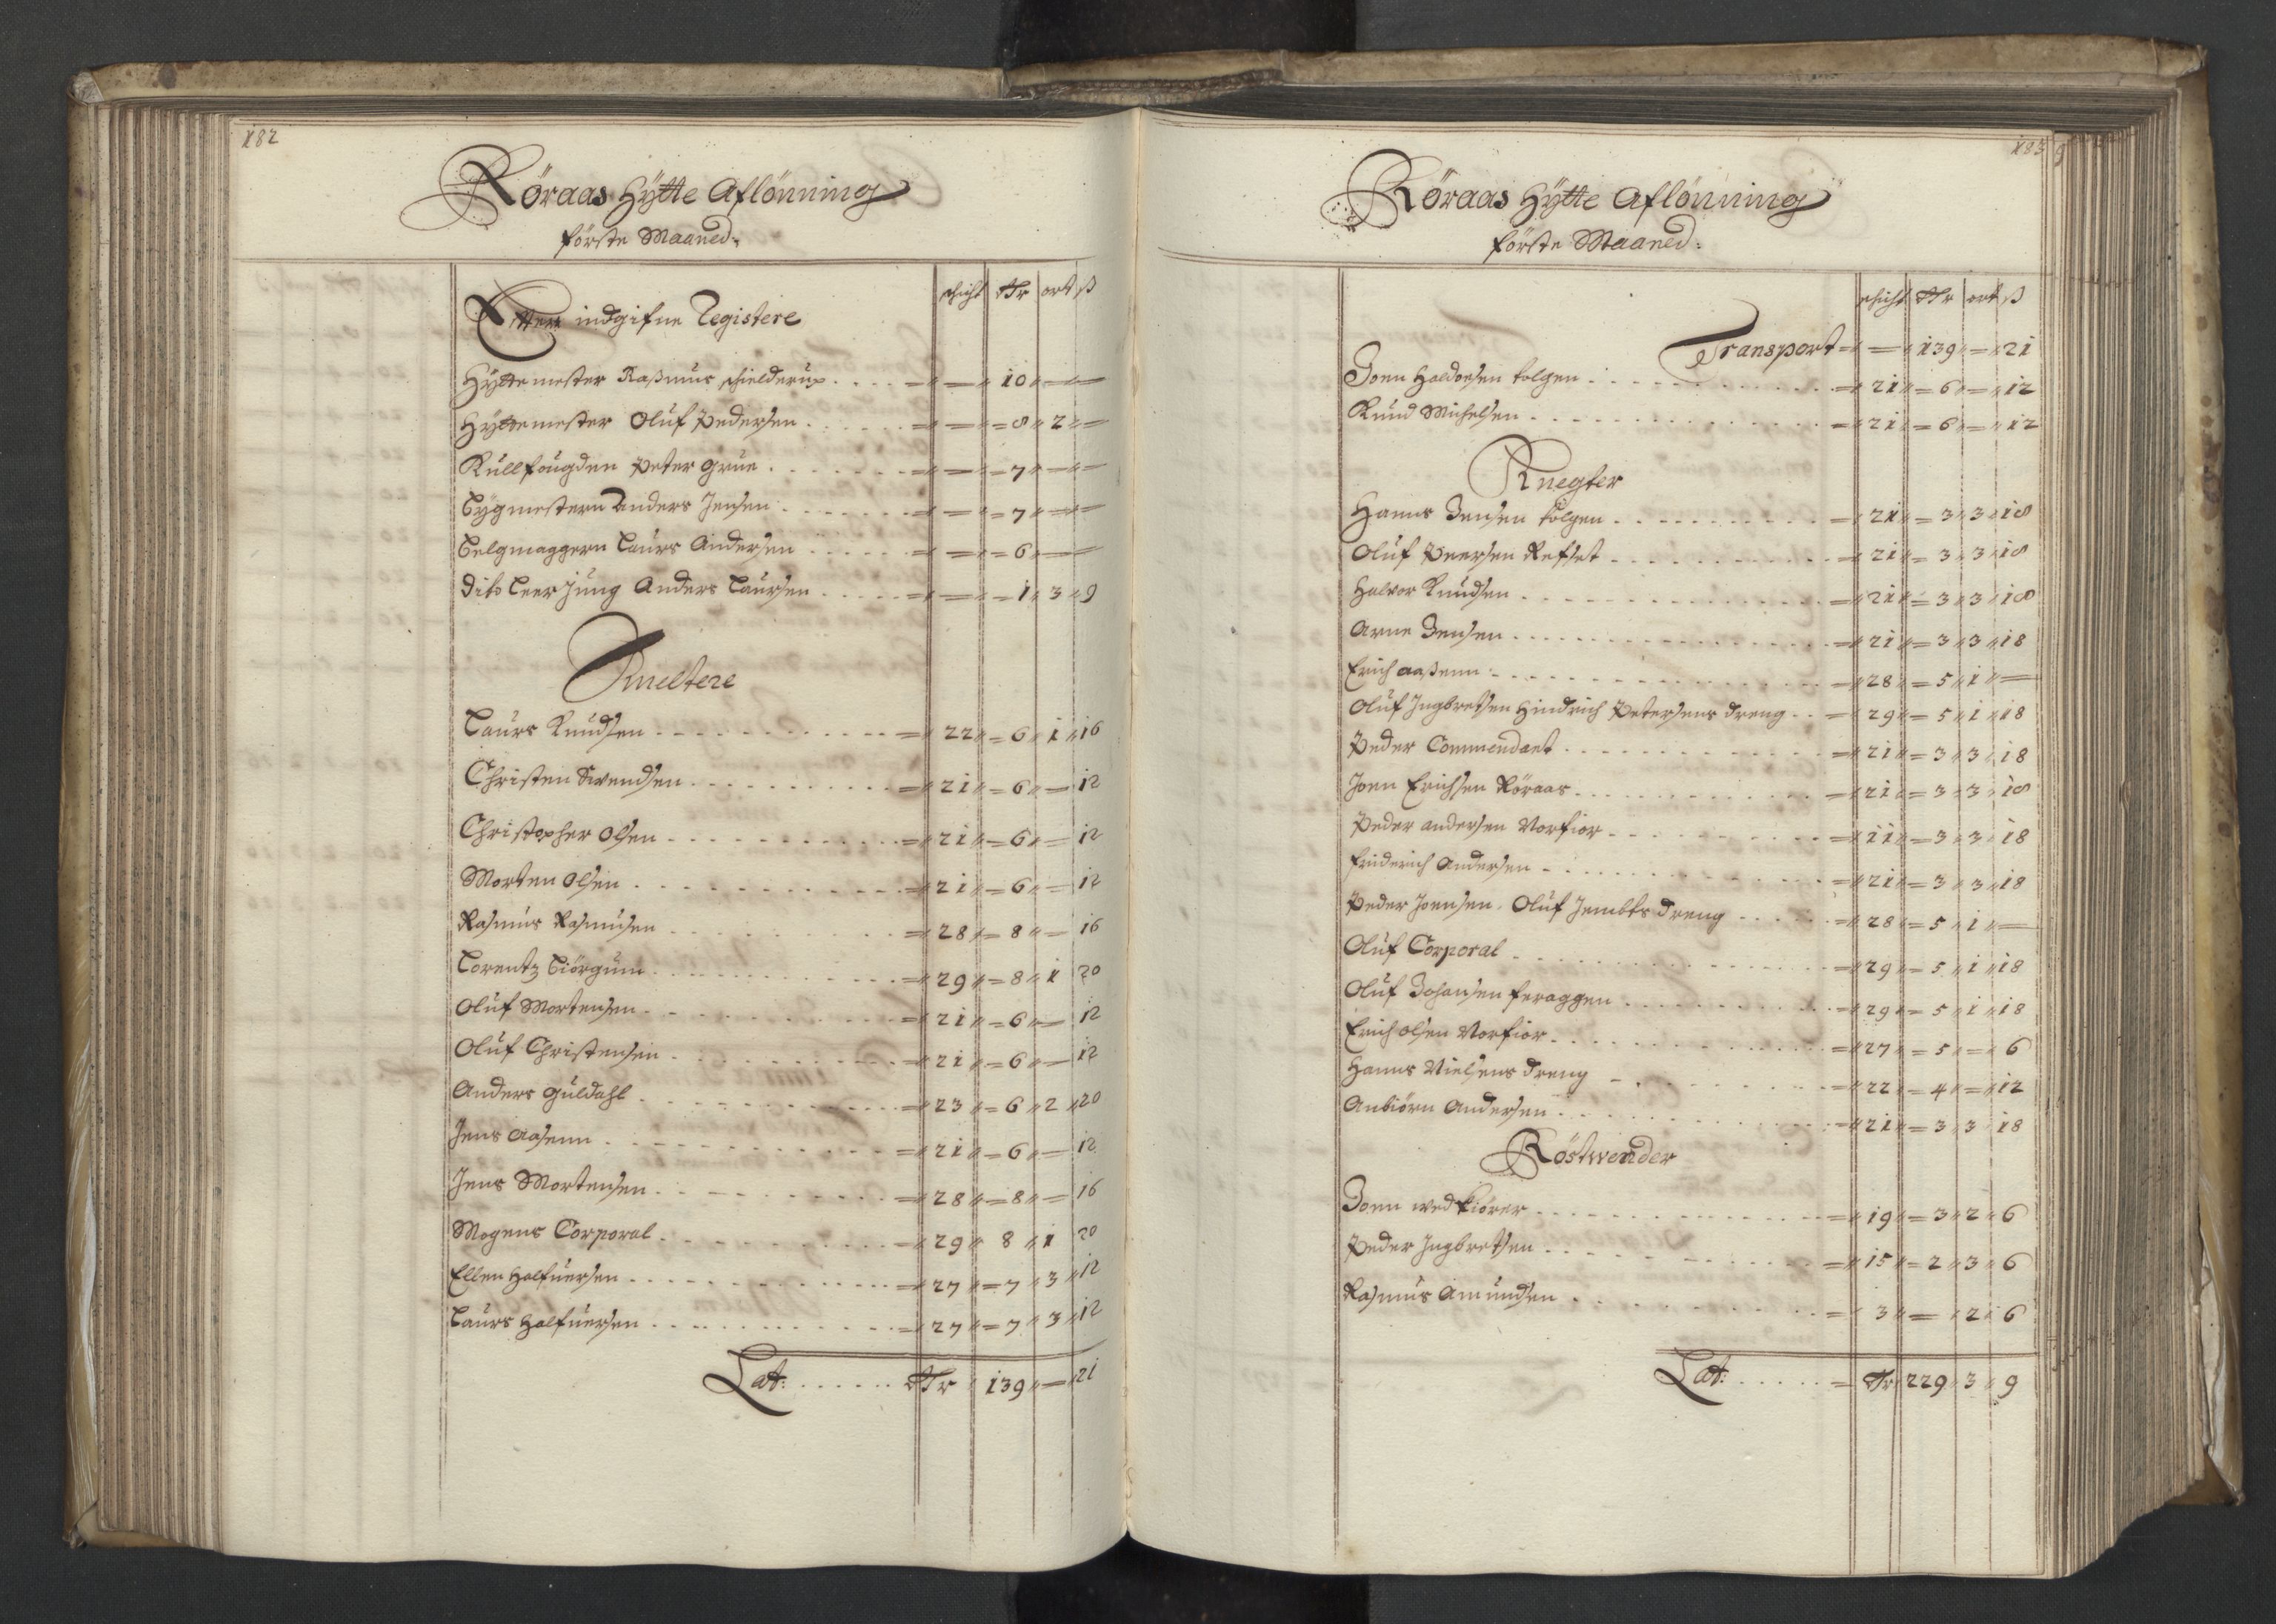 182
Röraas Hÿtte Aflönning
förste Maaned:
schicht Rdr ort ß
Efter indgifne Registere
Hÿttemester Raßmus schielderup . . . . = — 10 — —
Hÿttemester Oluf Pedersen . . . . . . = — = 8 2 —
Kullfougden Peter Grue . . . . . . . = — = 7 — —
Bÿgmestern Anders Jensen . . . . . . = — = 7 — —
Belgmaggern Laurs Andersen . . . . . = — = 6 — —
Dito Leerjung Anders Laursen . . . . = — = 1 3 9
Smeltere
Laurs Knudsen . . . . . . = 22 = 6 1 16
Christen Svendsen . . . . . . = 21 = 6 — 12
Christopher Olsen . . . . . . = 21 = 6 — 12
Morten Olsen . . . . . . = 21 = 6 — 12
Rasmus Rasmusen . . . . . . = 28 = 8 — 16
Lorentz Biörgum . . . . . . = 29 = 8 1 20
Oluf Mortensen . . . . . . = 21 = 6 — 12
Oluf Christensen . . . . . . = 21 = 6 — 12
Anders Guldahl . . . . . . = 23 = 6 2 20
Jens Aasenn . . . . . . = 21 = 6 — 12
Jens Mortensen . . . . . . = 28 = 8 — 16
Mogens Corporal . . . . . . = 29 8 1 20
Ellen Halfuersen . . . . . . = 27 = 7 3 12
Laurs Halfuersen . . . . . . = 27 = 7 3 12
Lat: . . . . . . Rdr 139 — 21
183
Röraas Hÿtte Aflönning
förste Maaned:
schicht Rdr ort ß
Transport = — 139 = 21
Joen Haldorsen tolgen . . . . . . = 21 = 6 = 12
Knud Michelsen . . . . . . = 21 = 6 = 12
Knegter
Hanns Jensen tolgen . . . . . . = 21 = 3 3 18
Oluf Peersen Refset . . . . . . = 21 = 3 3 18
Halvor Knudsen . . . . . . = 21 = 3 3 18
Arne Jensen . . . . . . = 21 = 3 3 18
Erich Aaßenn . . . . . . = 28 = 5 1 —
Oluf Ingbretsen Hindrich Petersens dreng . . = 29 = 5 1 18
Peder Commendant . . . . . . = 21 = 3 3 18
Joen Erichsen Röraas . . . . . . = 21 = 3 3 18
Peder andersen Vorfior . . . . . . = 21 = 3 3 18
Friderich Andersen . . . . . . = 21 = 3 3 18
Peder Joensen. Oluf Jembts dreng . . . . = 28 = 5 1 —
Oluf Corporal . . . . . . = 29 = 5 1 18
Oluf Johansen feraggen . . . . . . = 29 = 5 1 18
Erich Olsen Vorfior . . . . . . = 27 = 5 = 6
Hanns Nielsens dreng . . . . . . = 22 = 4 = 12
Anbiörn Andersen . . . . . . = 21 = 3 3 18
Röstwender
Joen wedkiörer . . . . . . = 19 = 3 2 6
Peder Ingbretsen . . . . . . = 15 = 2 3 6
Rasmus Amundsen . . . . . . = 3 = 2 6
Lat: . . . . . = Rdr 229 3 9